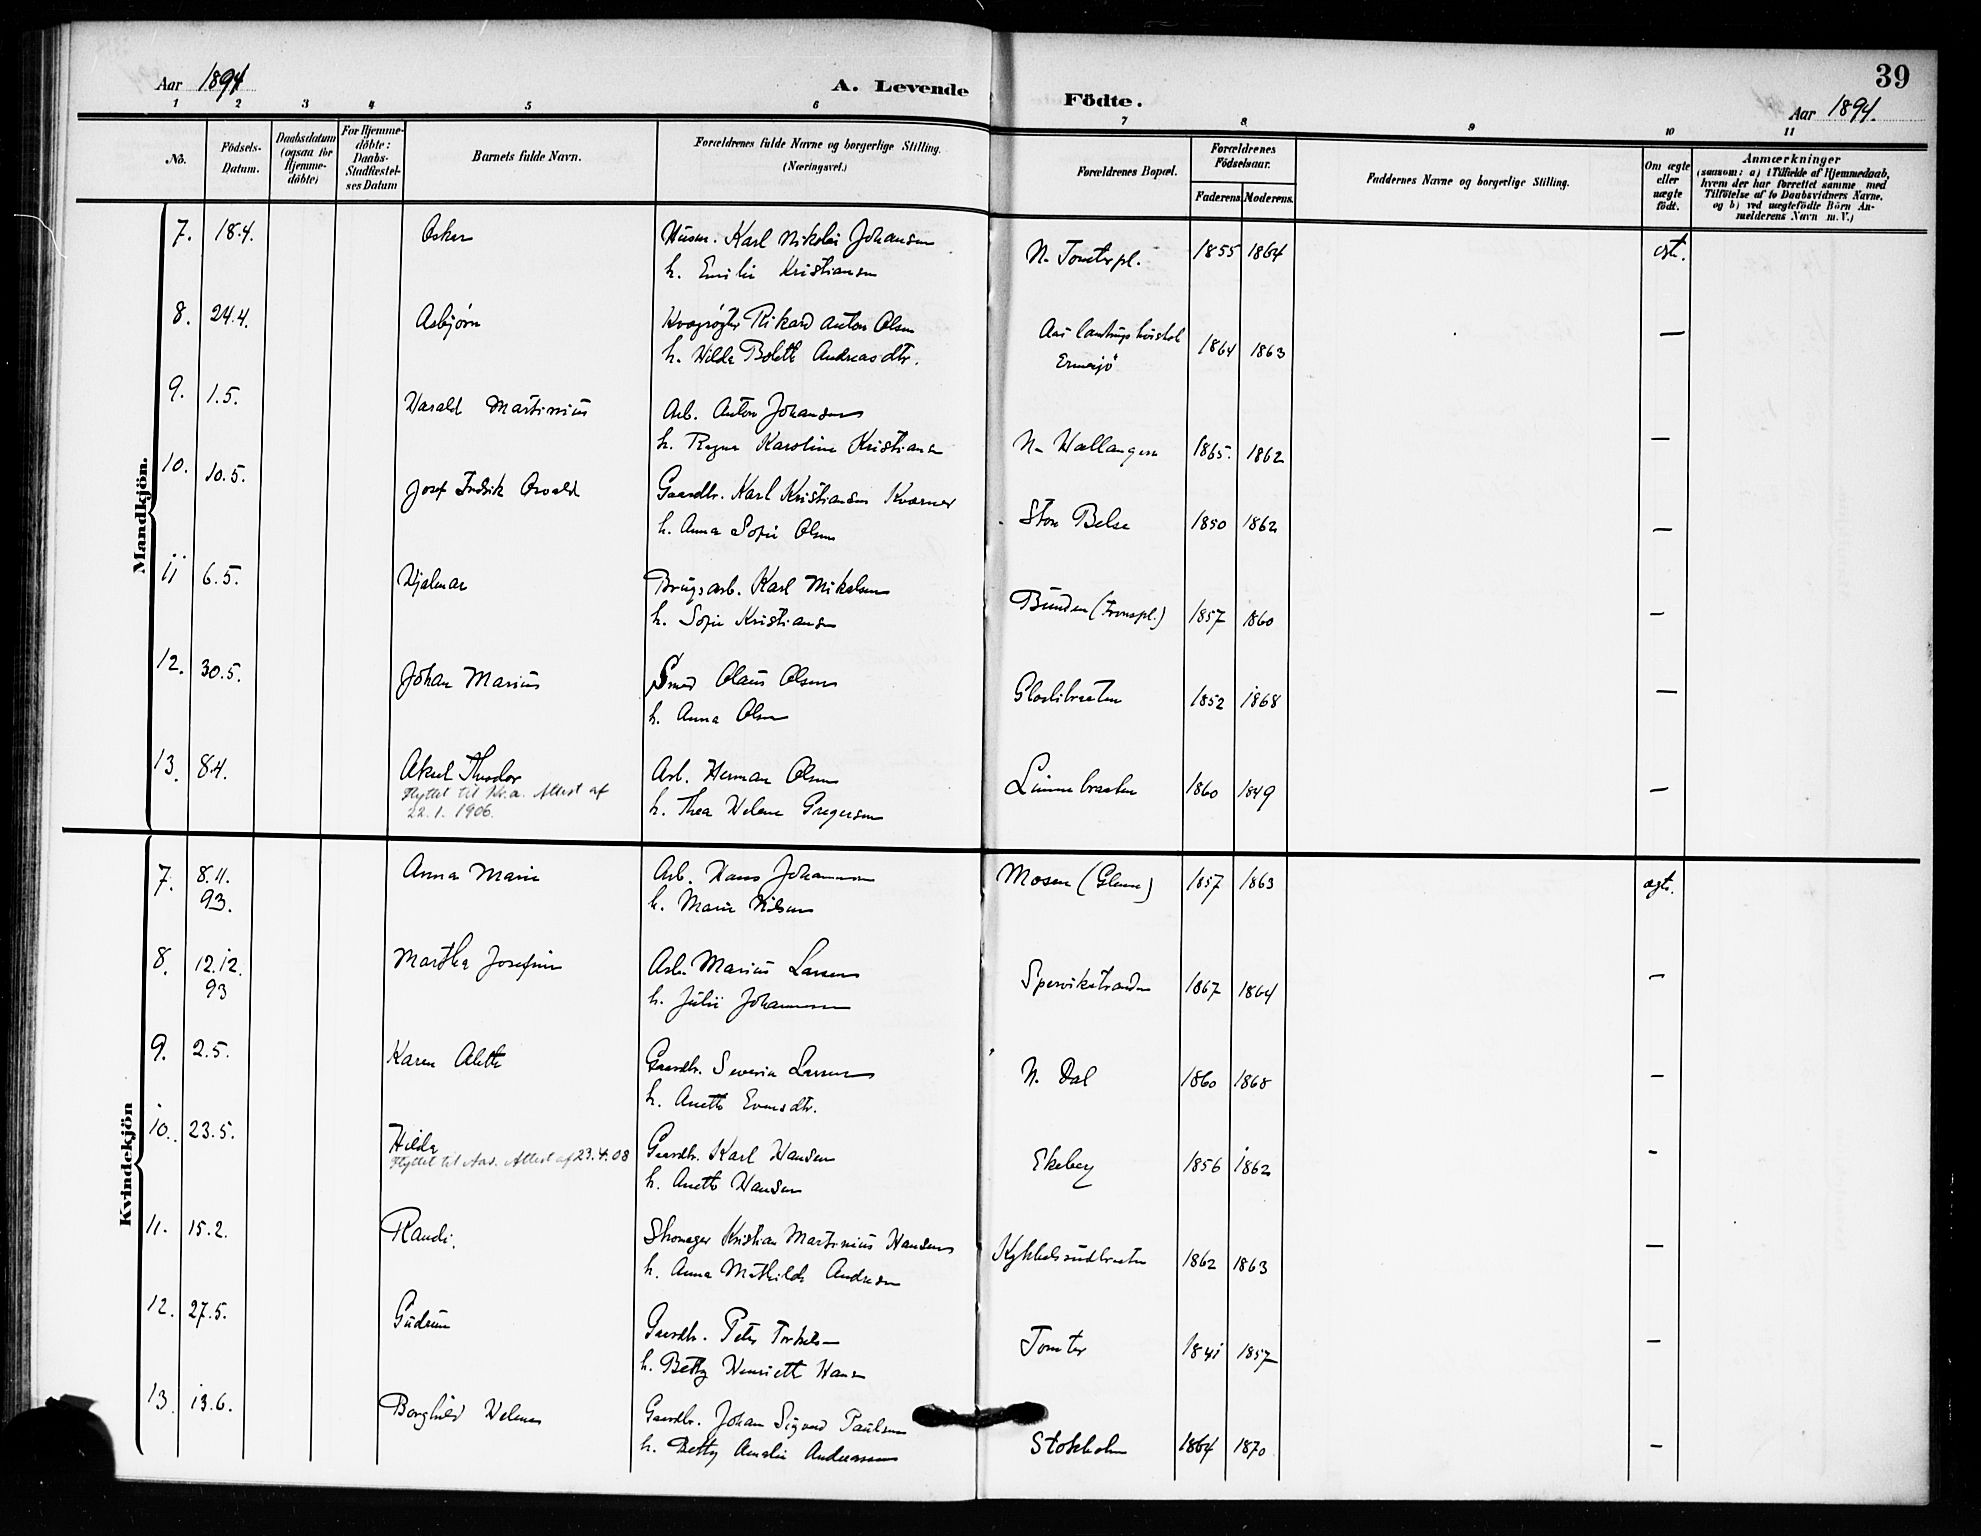 39
Aar 1894
A. Levende
Födte.
Aar 1894.
1 2 3 4 5 6 7 8 9 10 11
No.
Födsels-Datum.
Daabsdatum (ogsaa for Hjemme-döbte)
For Hjemme-döbte: Daabs-Stadfæstel-ses Datum
Barnets fulde Navn.
Forældrenes fulde Navne og borgerlige Stilling. (Næringsvei.)
Forældrenes Bopæl.
Forældrenes Födselsaar.
Faderens Moderens.
Faddernes Navne og borgerlige Stilling.
Om ægte eller uægte födt.
Anmærkninger
(saasom: a) i Tilfælde af Hjemmedaab,
hvem der har forrettet samme med
Tilföielse af to Daabsvidners Navne.
og b) ved uægtefödte Börn An-
melderens Navn m. V.)
Mandkjön.
7. 18.4. Osker Husm. Karl Nikolai Johansen N. Tomterpl. 1855 1864 ægt.
h. Emilie Kristiansen
8. 24.4. Asbjørn Kvægrøgter Rikard Anton Olsen Aas 1864 1863 —
h. Hilda Bolette Andreasdtr.
9. 1.5. Harald Martinius Arb. Anton Johansen
h. Ragna Karoline Kristiansen N. Hallangen 1865. 1862 —
10. 10.5. Josef Fredrik Osvald Gaardbr. Karl Kristiansen Kværner Store Belse 1850 1862 —
h. Anna Sofie Olsen
11 6.5. Hjalmar Brugsarb. Karl Mikelsen Bunden (Fronspl.) 1857 1860 —
h. Sofie Kristiansen
12. 30.5. Johan Marius Smed Olaus Olsen 1852 1868 —
h. Anna Olsen
13. 8.4. Aksel Theodor Arb. Herman Olsen 1860 1849 —
Flyttet til Kr.a. Attest af
22.1.1906.
h. Thea Helene Gregersen
Kvindekjön
7. 8.11. 93. Anna Marie Arb. Hans Johannesen Mosen (Glenne) 1857 1863 ægte.
h. Marie Nilsen
8. 12.12. 93 Martha Josefine Arb. Marius Larsen Spervikstranden 1867 1864 —
h. Julie Johannesen
9. 2.5. Karen Alette Gaardbr. Severin Larsen N. Dal 1860 1868 —
h. Anette Evensdtr.
10. 23.5. Hilda Gaardbr. Karl Hansen Ekeberg 1856 1862 -
Flyttet til Aas. Attest af 23.4.08
h. Anette Hansen
11. 15.2. Randi. Skomager Kristian Martinius Hansen Kykkelsrudbraaten 1862 1863 —
h. Anna Mathilde Andresen
12. 27.5. Gudrun Gaardbr. Peter Torkelsen Tomter 1841 1857 —
h. Betty Henriette Hansen
13. 13.6. Borghild Helene Gaardbr. Johan Sigvard Paulsen Stokholm 1864 1870 -
h. Betty Amalie Andreassen